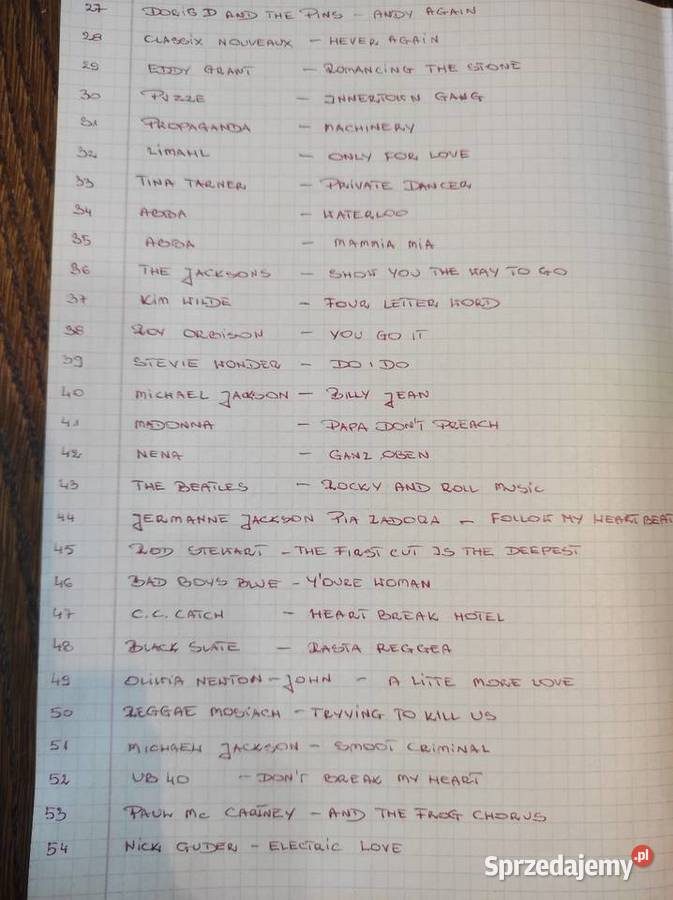 27 DORIS D AND THE PINS - ANDY AGAIN
28 CLASSIX NOUVEAUX - HEVER AGAIN
29 EDDY GRANT - ROMANCING THE STONE
30 PUZZE - INNERTOWN GANG
31 PROPAGANDA - MACHINERY
32 LIMAHL - ONLY FOR LOVE
33 TINA TARNER - PRIVATE DANCER
34 ABBA - WATERLOO
35 ABBA - MAMMIA MIA
36 THE JACKSONS - SHOW YOU THE WAY TO GO
37 KIM WILDE - FOUR LETTER WORD
38 ROY ORBISON - YOU GO IT
39 STEVIE WONDER - DO I DO
40 MICHAEL JACKSON - BILLY JEAN
41 MADONNA - PAPA DON'T PREACH
42 NENA - GANZ OBEN
43 THE BEATLES - ROCKY AND ROLL MUSIC
44 JERMANNE JACKSON PIA ZADORA - FOLLOW MY HEARTBEAT
45 ROD STEWART - THE FIRST CUT IS THE DEEPEST
46 BAD BOYS BLUE - Y'OURE WOMAN
47 C.C. CATCH - HEART BREAK HOTEL
48 BLACK SLATE - RASTA REGGEA
49 OLIWIA NEWTON-JOHN - A LITTE MORE LOVE
50 REGGAE MOSIACH - TRYVING TO KILL US
51 MICHAEL JACKSON - SMOOT CRIMINAL
52 UB 40 - DON'T BREAK MY HEART
53 PAUL MC CARTNEY - AND THE FROG CHORUS
54 NICK GUDER - ELECTRIC LOVE
Sprzedajemy.pl